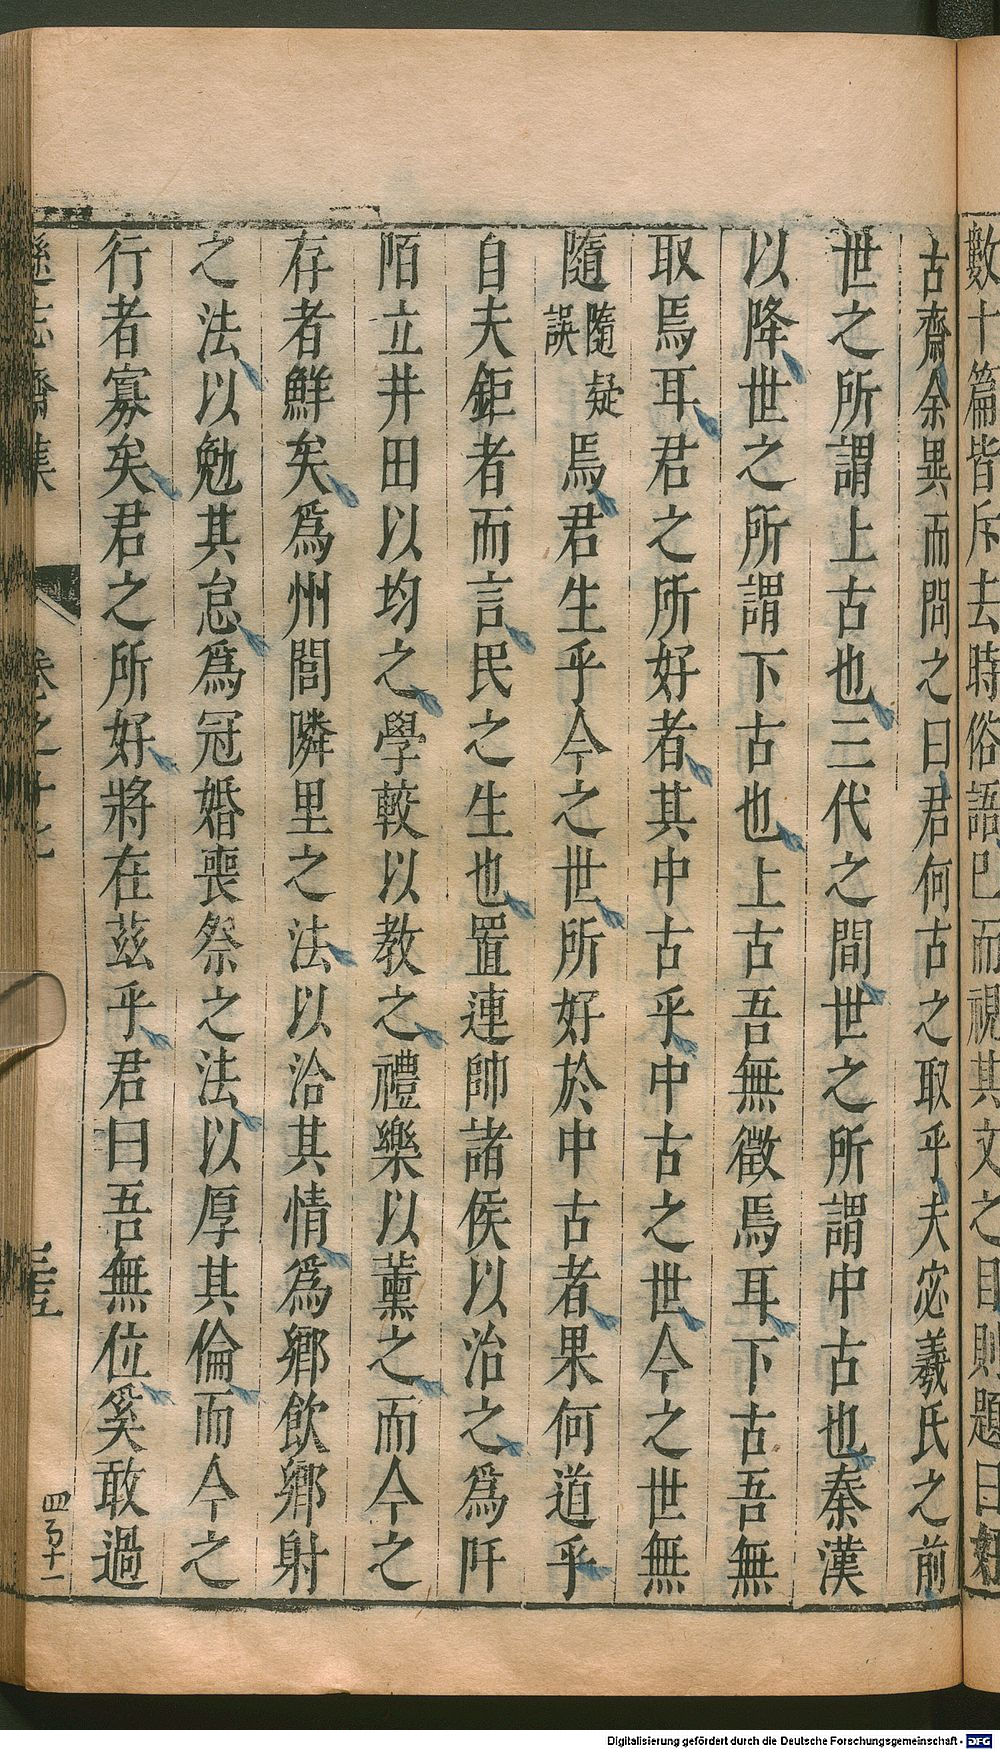 數十篇皆斥去時俗語已而視其文之目則題曰好
古齋余異而問之曰君何古之取乎夫宓羲氏之前
世之所謂上古也三代之間世之所謂中古也秦漢
以降世之所謂下古也上古吾無徵焉耳下古吾無
取焉耳君之所好者其中古乎中古之世今之世無
隨隨疑誤焉君生乎今之世所好於中古者果何道乎
自夫鉅者而言民之生也置連帥諸侯以治之爲阡
陌立井田以均之學較以教之禮樂以薰之而今之
存者鮮矣爲州閭隣里之法以洽其情爲鄉飲鄉射
之法以勉其怠爲冠婚喪祭之法以厚其倫而今之
行者寡矣君之所好將在茲乎君曰吾無位奚敢過
遜志齋集
卷之十七
四百十二
Digitalisierung gefördert durch die Deutsche Forschungsgemeinschaft - DFG